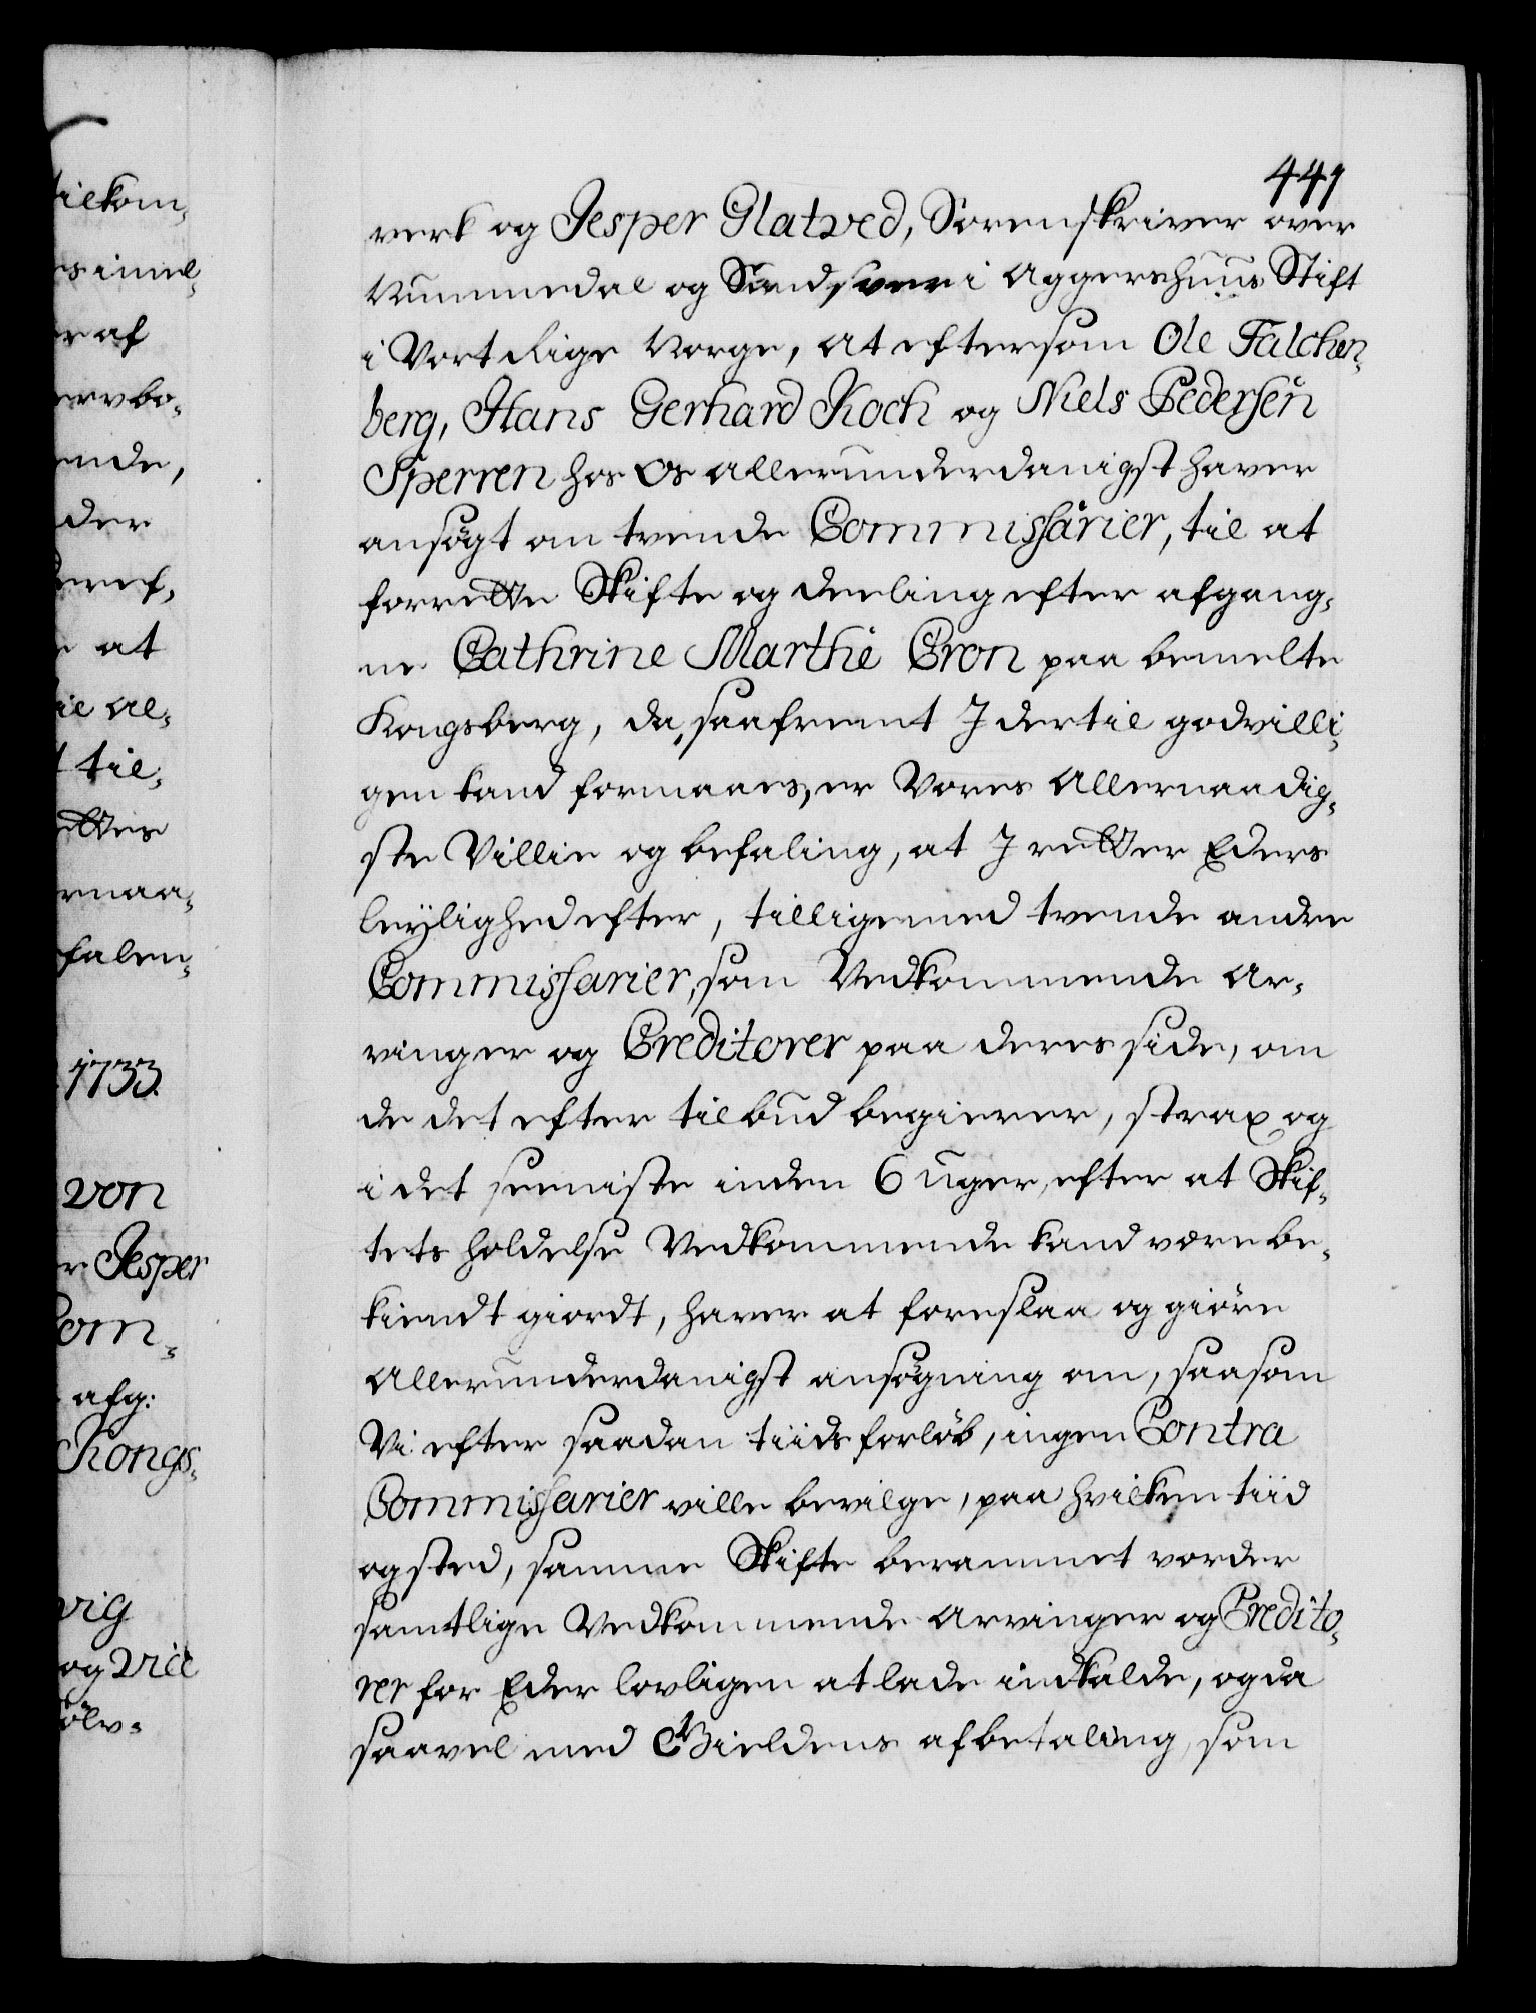 449
verk og Jesper Glatved, Sorenskriver over
Nummedal og Sandsver i Aggershuus Stift
i Vort Rige Norge, at eftersom Ole Falchen-
berg, Hans Gerhard Koch og Niels Pedersen
Sperren hos Os allerunderdanigst haver
ansøgt om tvende Commissarier, til at
forrette Skifte og deeling efter afgang-
ne Cathrine Marthe Cron paa bemelte
Kongsberg, da, saafremt I dertil godvilli-
gen kand formaaes, er Vores Allernaadig-
ste Villie og befaling, at I retter Eders
leylighed efter, tilligemed tvende andre
Commissarier, som Vedkommende Ar-
vinger og Creditorer paa deres side, om
de det efter tilbud begierer, strax og
i det seeniste inden 6 uger, efter at Skif-
tets holdelse Vedkommende kand være be-
kiendt giordt, haver at foreslaa og giøre
Allerunderdanigst ansøgning om, saasom
Vi efter saadan tiids forløb, ingen Contra
Commissarier ville bevilge, paa hvilken tiid
og sted, samme Skifte berammet vorder
samtlige Vedkommende Arvinger og Credito-
rer for Eder lovligen at lade indkalde, og da
saavel med Gieldens afbetaling, som
tilkom-
er af
ende,
der
at
til-
1733.
von
Jesper
Com-
afg:
Kongs-
vig
og Vice
Sølv-